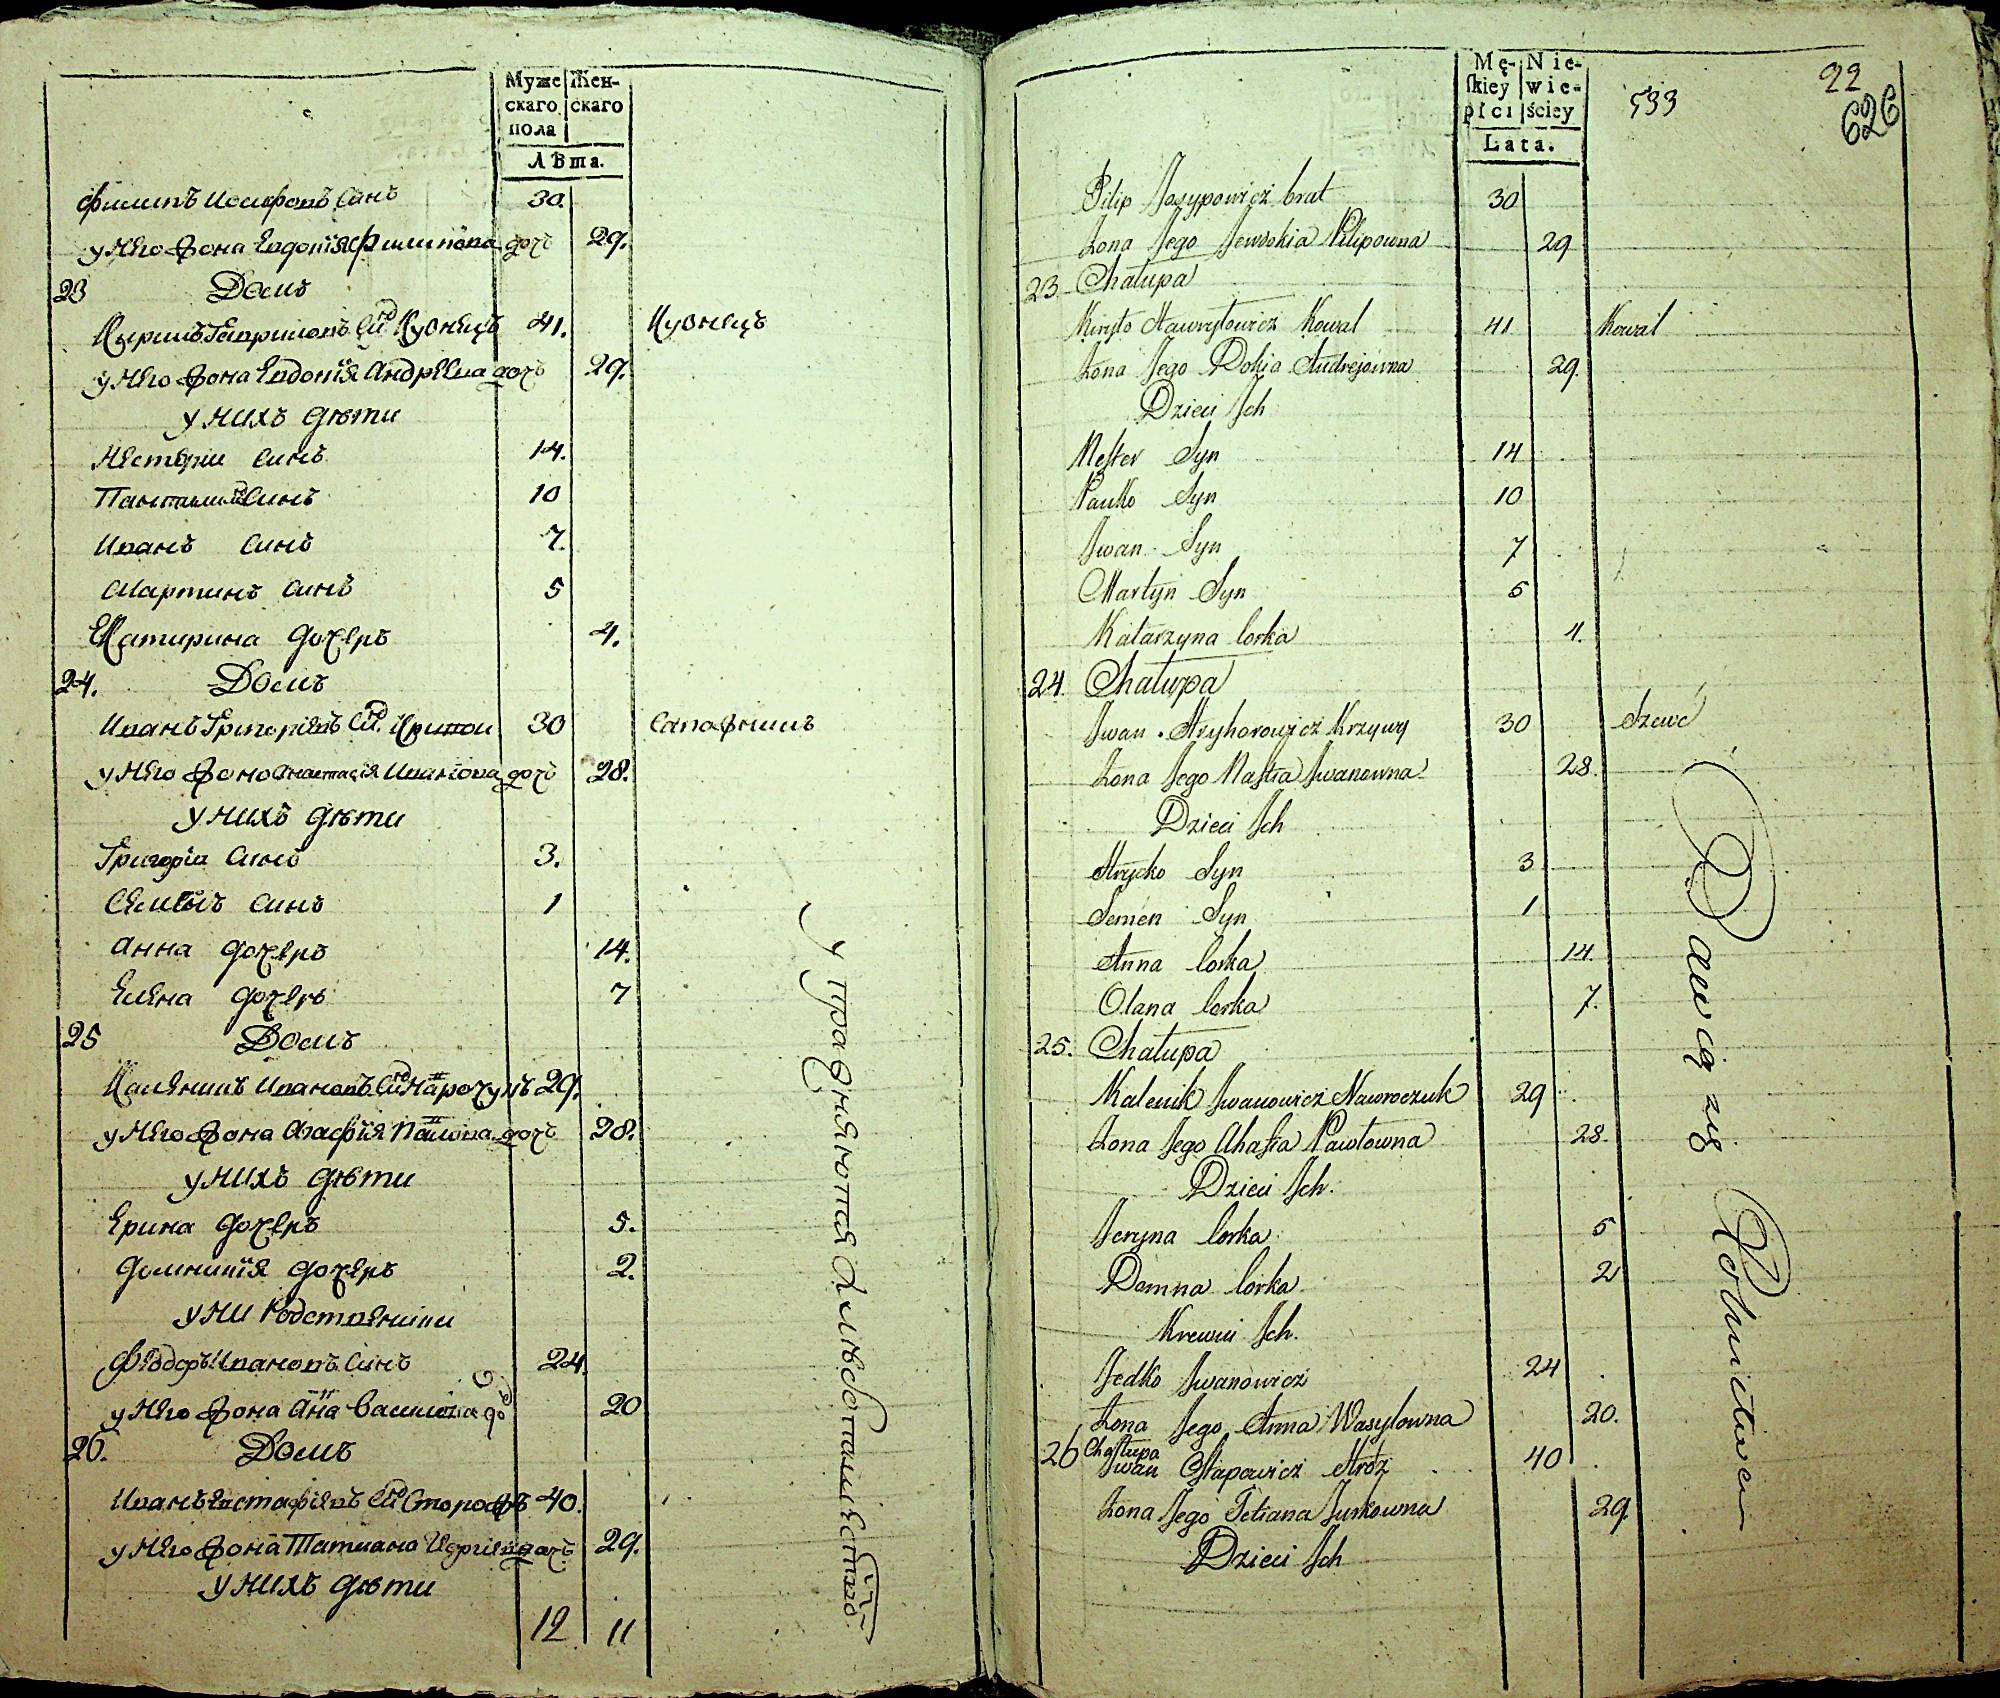 Муже Жен-
скаго скаго
пола
Лѣта.
Филипъ Иосифовъ Синъ 30.
у Него жона Евдокія Филипова дочь 29.
23 Домъ
Кирилъ Гавриловъ Си Кузнецъ 41. Кузнецъ
у Него жона Евдокія Андреева дочь 29.
у Нихъ дѣти
Нестерій Синъ 14.
Синъ 10
Иванъ Синъ 7.
Мартинъ Синъ 5
Екатирина дочерь 4.
24. Домъ
Иванъ Григоріевъ Си Кривои 30 Сапожникъ
у Него жона Анастасія Иванова дочь 28.
у Нихъ дѣти
Григорій Синъ 3.
Семенъ Синъ 1
Анна дочерь 14.
Елена дочерь 7
25 Домъ
Каленикъ Ивановъ Си 29.
у Него жона Агафія Павлова дочь 28.
у Нихъ дѣти
Ерина дочерь 5.
Домникія дочерь 2.
у Ни Родственики
Федоръ Ивановъ Синъ 24.
у Него жона Анна Василева до 20
26. Домъ
Иванъ Евстафіевъ Си Сторожъ 40.
у Него жона Татиана дочь 29.
у Нихъ дѣти
12 11
упражняются Хлѣбопашествомъ
Mę- Nie-
skiey wie-
płci ściey
Lata.
533
22
626
Pilip Josypowicz brat 30
Żona Jego Jewdokia Pilipowna 29
23 Chałupa
Kiryło Hawryłowicz Kowal 41 Kowal
Żona Jego Dokia Andrejowna 29.
Dzieci Ich
Nester Syn 14
Syn 10
Iwan Syn 7
Martyn Syn 5
Katarzyna Corka 4.
24 Chałupa
Iwan Hryhorowicz Krzywy 30 Szewc
Żona Jego Nastia Iwanowna 28.
Dzieci Ich
Hrycko Syn 3
Semen Syn 1
Anna Corka 14
Olana Corka 7.
25. Chałupa
Kalenik Iwanowicz Naworoczuk 29
Żona Jego Ahafia Pawłowna 28.
Dzieci Ich.
Jeryna Corka 5
Demna Corka 2
Krewni Ich.
Fedko Iwanowicz 24
Żona Jego Anna Wasylowna 20.
26 Chałupa
Iwan Ostapowicz Stróz 40
Żona Jego Tetiana Jurkowna 29
Dzieci Ich
Bawią się Rolnictwem